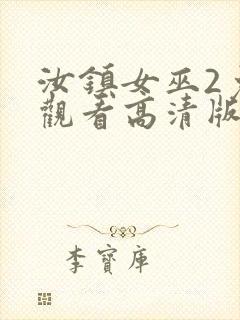 汝鎮女巫2
觀看高清版
李寶庫